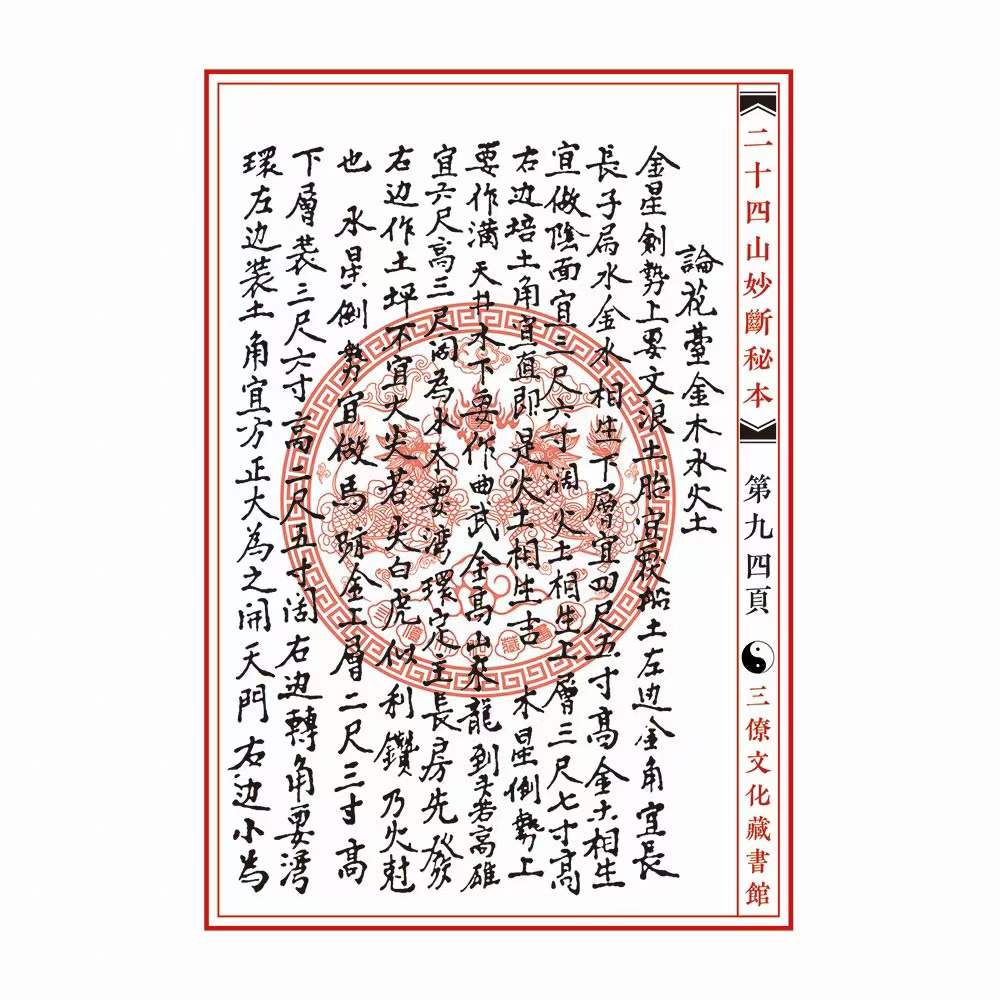 二十四山妙斷秘本
第九四頁
三僚文化藏書館
論花臺金木水火土
金星劍勢上要文浪土胎宜蛟船土左边金角宜長
長子属水金水相生下層宜四尺五寸高金土相生
宜做陰面宜三尺六寸濶火土相生上層三尺七寸高
右边培土角宜直即是火土相生吉 木星倒勢上
要作満天井水下要作曲武金高山來龍到头若高雄
宜六尺高三尺闊為水木要湾環定主長房先發
右边作土坪不宜大尖若尖白虎似利鑽乃火尅
也 水星倒勢宜做馬跡金工層二尺三寸高
下層裝三尺六寸高二尺五寸濶右边轉角要湾
環左边装土角宜方正大為之開天門右边小為